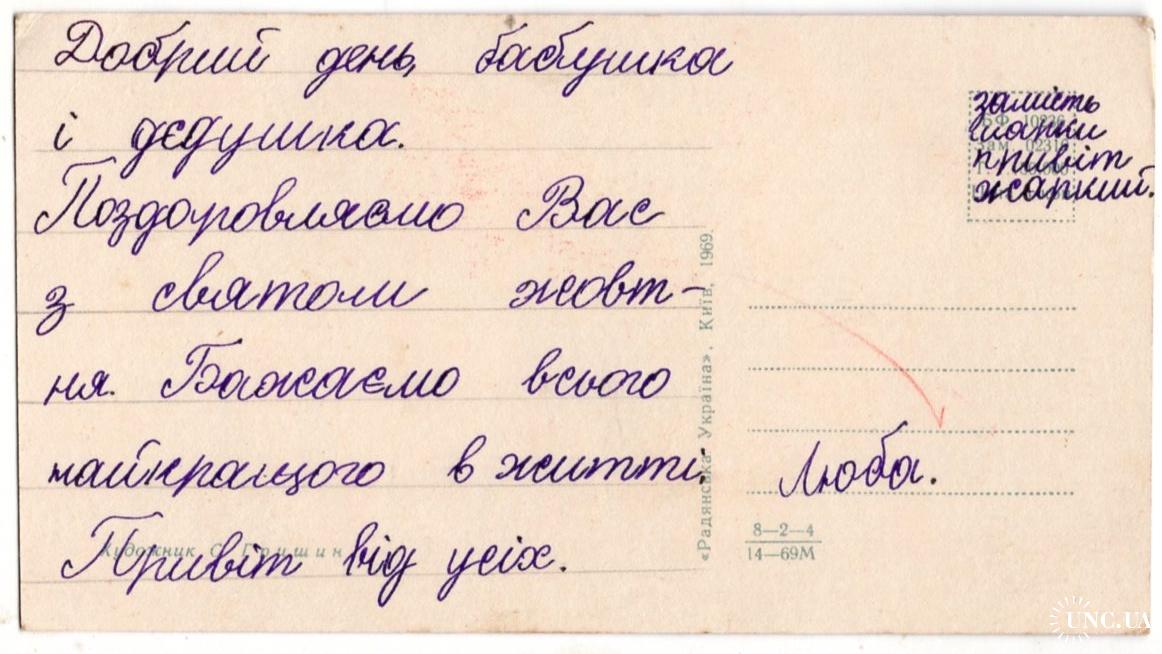 Добрий день, бабушка
і дєдушка.
Поздоровляємо Вас
з святом жовт-
ня. Бажаємо всього
найкращого в житті.
Привіт від усіх.
Художник С. Гришин
«Радянська Україна», Київ, 1969.
замість
марки
привіт
жаркий.
БФ 10926
Зам 0231
Люба.
8—2—4
14—69М
UNC.UA